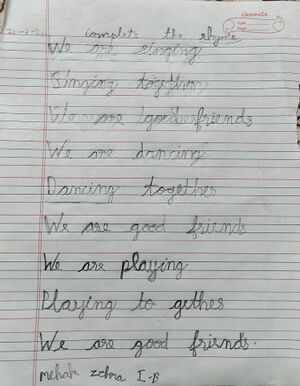 classmate
Date
Page
complete the rhyme
We are singing
Singing together
We are good friends
We are dancing
Dancing together
We are good friends
We are playing
Playing to gether
We are good friends.
mehak zehra I-B